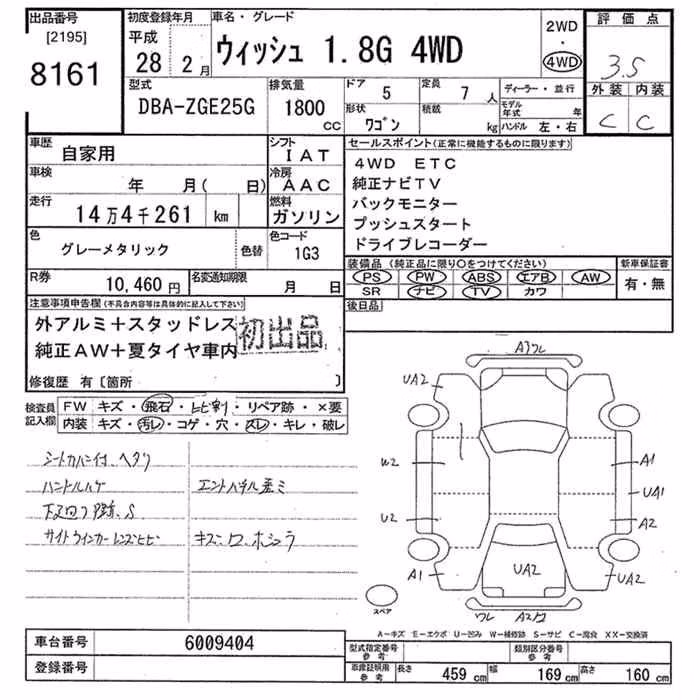 出品番号
[2195]
8161
初度登録年月
平成
28 2 月
車名・グレード
ウィッシュ 1.8G 4WD
2WD
・
4WD
評価点
3.5
外装 内装
C C
型式
DBA-ZGE25G
排気量
1800
CC
ドア
5
定員
7 人
形状
ワゴン
積載
kg
ディーラー・並行
モデル年式 年
ハンドル 左・右
車歴
自家用
シフト
IAT
車検
年 月( 日)
冷房
AAC
走行
14万4千261 km
燃料
ガソリン
色
グレーメタリック
色替
色コード
1G3
R券
10,460円
名変通知期限
月 日
セールスポイント(正常に機能するものに限ります)
4WD ETC
純正ナビTV
バックモニター
プッシュスタート
ドライブレコーダー
装備品(純正品に限り○をつけてください)
PS PW ABS エアB AW
SR ナビ TV カワ
新車保証書
有・無
後日品
注意事項申告欄(不具合内容等は具体的に記入して下さい)
外アルミ+スタッドレス
純正AW+夏タイヤ車内
初出品
修復歴 有〔箇所 〕
検査員記入欄
FW キズ・飛石・ヒビ割・リペア跡・×要
内装 キズ・汚レ・コゲ・穴・スレ・キレ・破レ
シートカバー付、ヘタリ
ハンドルハゲ
下廻り錆、S
サイドウインカーレンズヒビ
キズ・ワ・ホジョラ
Aワレ
UA2
W2
U2
A1
A1
UA1
A2
UA2
UA2
ワレ
スペア
A-キズ E-エクボ U-凹み W-補修跡 S-サビ C-腐食 XX-交換済
車台番号
6009404
登録番号
型式指定番号
参考
類別区分番号
参考
車庫証明用
参考
長さ 459 cm
幅 169 cm
高さ 160 cm